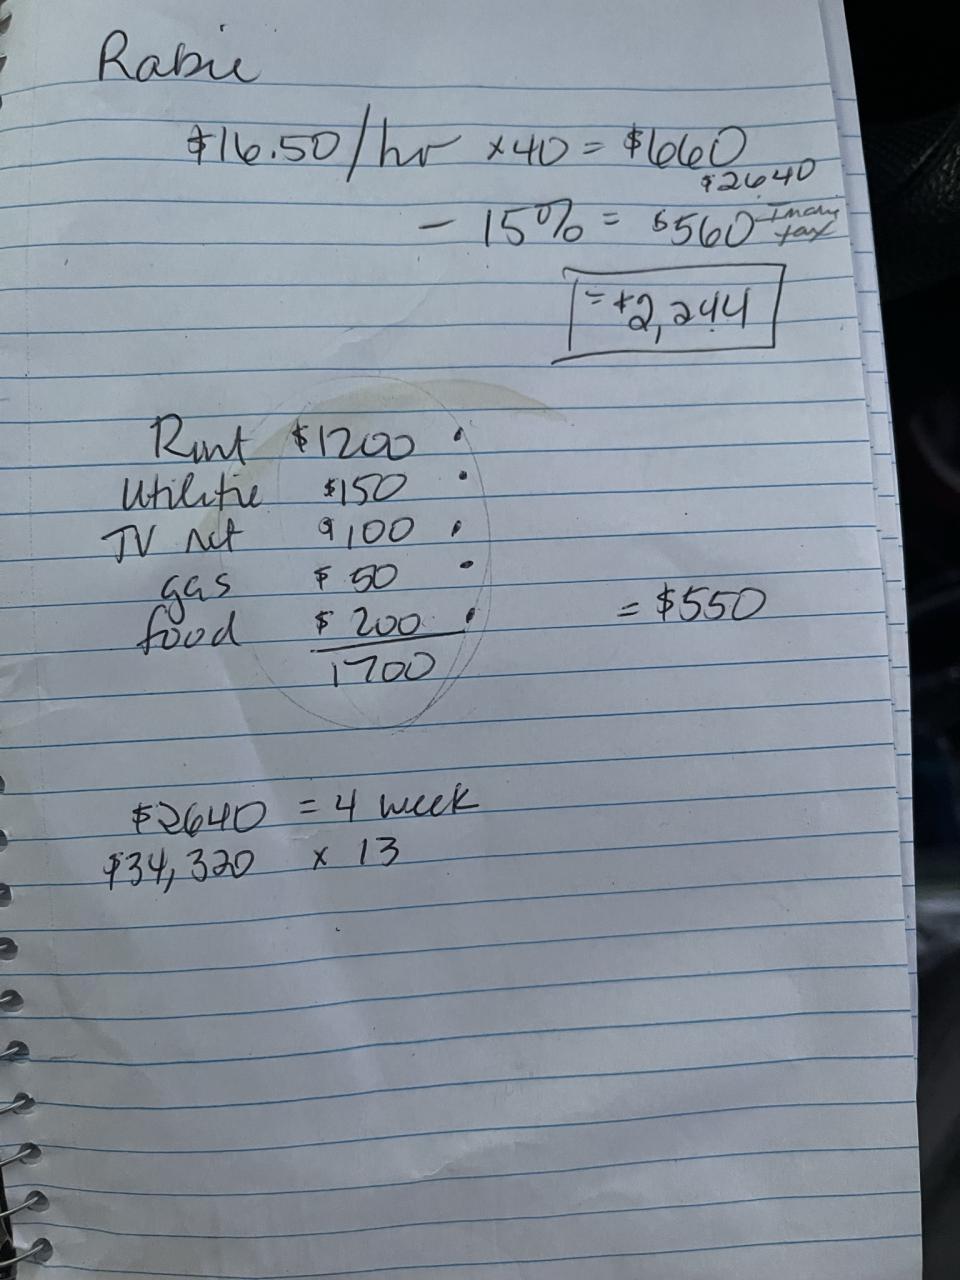 Rabie
$16.50/hr x40 = $660
$2640
- 15% = $560 tax
= $2,244
Rent $1200 •
Utilitie $150 •
TV net $100 •
gas $ 50 •
food $ 200 •
= $550
1700
$2640 = 4 week
$34,320 x 13